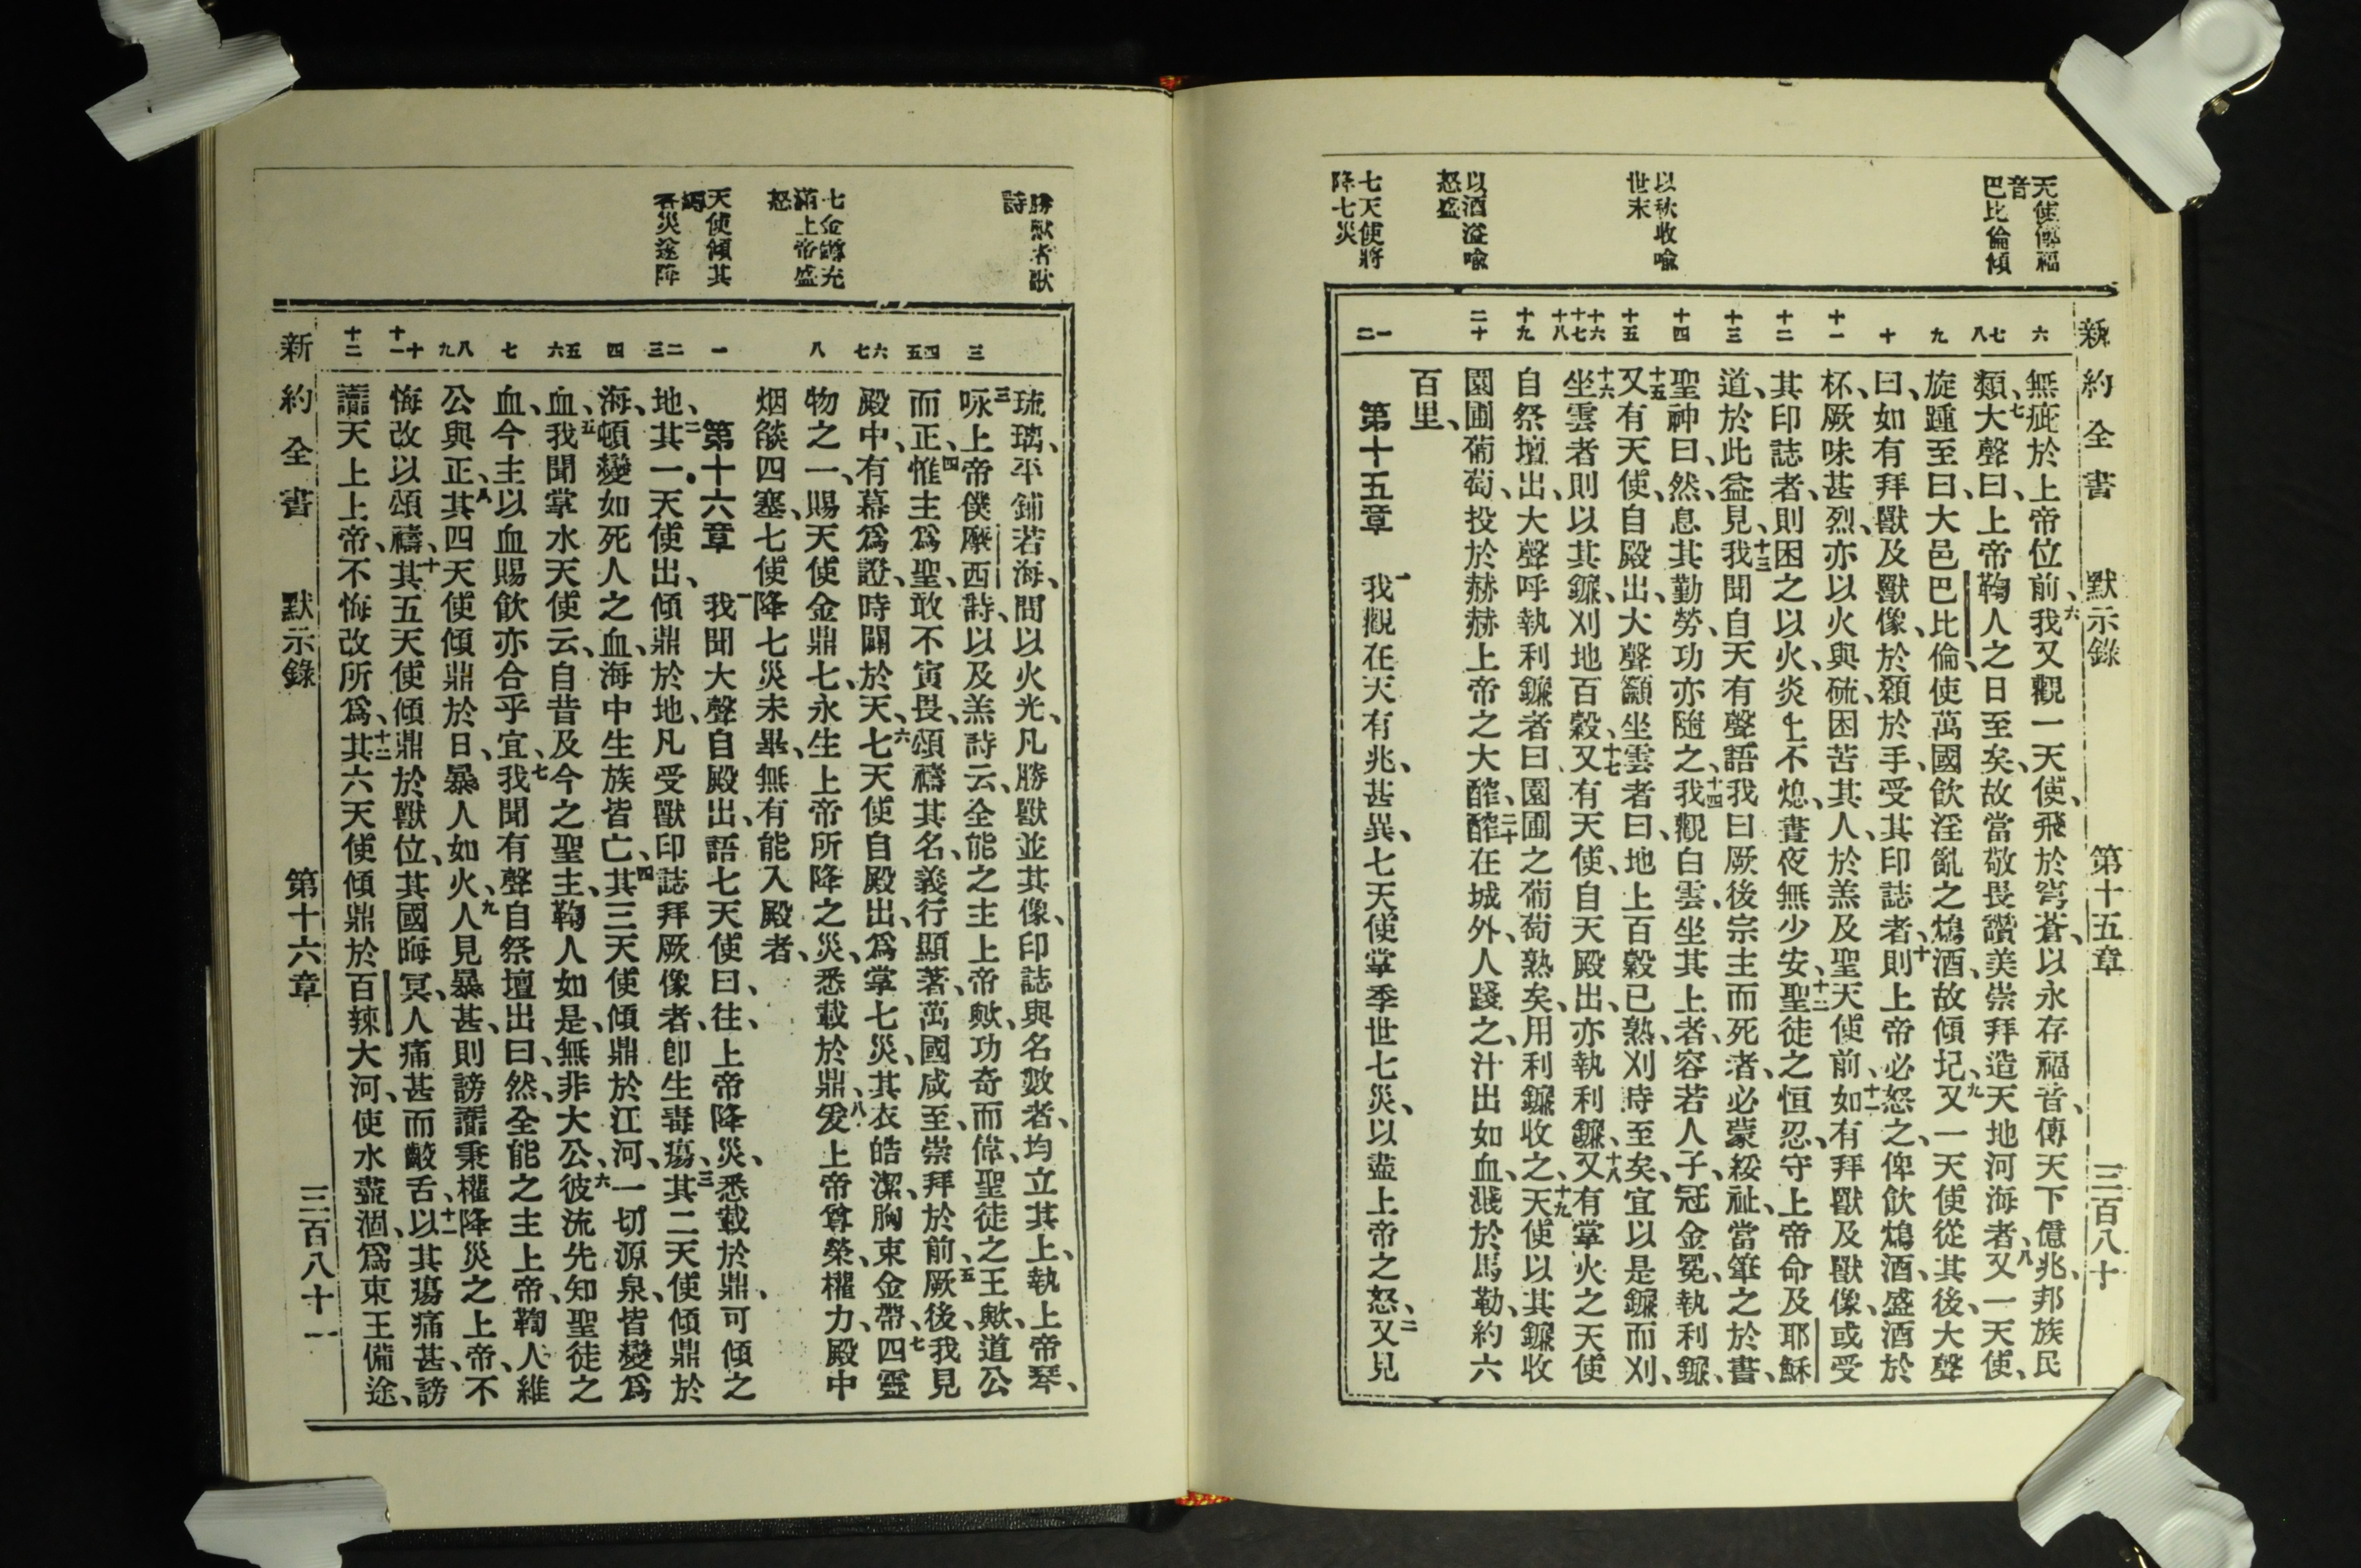 新約全書 默示錄 第十五章 三百八十
天使傳福
音
巴比倫傾
以秋收喩
世末
以酒滛喩
怒盛
七天使將
降七災
六
七
八
九
十
十一
十二
十三
十四
十五
十六
十七
十八
十九
二十
一
二
無疵於上帝位前、六我又觀一天使、飛於穹蒼、以永存福音、傳天下億兆、邦族民
類、七大聲曰、上帝鞫人之日至矣、故當敬畏讚美崇拜造天地河海者、八又一天使、
旋踵至曰、大邑巴比倫、使萬國飮淫亂之酖酒、故傾圮、九又一天使從其後、大聲
曰、如有拜獸及獸像、於顙於手、受其印誌者、十則上帝必怒之、俾飮酖酒、盛酒於
杯、厥味甚烈、亦以火與硫、困苦其人、於羔及聖天使前、十一如有拜獸及獸像、或受
其印誌者、則困之以火、炎上不熄、晝夜無少安、十二聖徒之恒忍、守上帝命及耶穌
道、於此益見、十三我聞自天有聲語我曰、厥後宗主而死者、必蒙綏祉、當筆之於書、
聖神曰、然、息其勤勞、功亦隨之、十四我觀白雲、坐其上者、容若人子、冠金冕、執利鐮、
十五又有天使、自殿出、大聲籲坐雲者曰、地上百穀已熟、刈時至矣、宜以是鐮而刈、
十六坐雲者則以其鐮、刈地百穀、十七又有天使、自天殿出、亦執利鐮、十八又有掌火之天使
自祭壇出、大聲呼執利鐮者曰、園圃之葡萄熟矣、用利鐮收之、十九天使以其鐮收
園圃葡萄、投於赫赫上帝之大醡、二十醡在城外、人踐之、汁出如血、濺於馬勒、約六
百里、
第十五章 一我觀在天有兆、甚異、七天使掌季世七災、以盡上帝之怒、二又見
勝獸者歌
詩
七金罇充
滿上帝盛
怒
天使傾其
罇
各災遂降
三
四
五
六
七
八
一
二
三
四
五
六
七
八
九
十
十一
十二
琉璃、平鋪若海、間以火光、凡勝獸並其像、印誌與名數者、均立其上、執上帝琴、
三咏上帝僕摩西詩、以及羔詩云、全能之主上帝歟、功奇而偉、聖徒之王歟、道公
而正、四惟主爲聖、敢不寅畏、頌禱其名、義行顯著、萬國咸至、崇拜於前、五厥後、我見
殿中、有幕爲證、時闢於天、六七天使自殿出、爲掌七災、其衣皓潔、胸束金帶、七四靈
物之一、賜天使金鼎七、永生上帝所降之災、悉載於鼎、八爰上帝尊榮、權力、殿中
烟燄四塞、七使降七災未畢、無有能入殿者、
第十六章 一我聞大聲自殿出、語七天使曰、往、上帝降災、悉載於鼎、可傾之
地、二其一天使出、傾鼎於地、凡受獸印誌拜厥像者、卽生毒瘍、三其二天使傾鼎於
海、頓變如死人之血、海中生族皆亡、四其三天使傾鼎於江河、一切源泉、皆變爲
血、五我聞掌水天使云、自昔及今之聖主、鞫人如是、無非大公、六彼流先知聖徒之
血、今主以血賜飮亦合乎宜、七我聞有聲自祭壇出曰、然、全能之主上帝、鞫人維
公與正、八其四天使傾鼎於日、暴人如火、九人見暴甚、則謗讟秉權降災之上帝、不
悔改以頌禱、十其五天使傾鼎於獸位、其國晦冥、人痛甚而齩舌、十一以其瘍痛甚、謗
讟天上上帝、不悔改所爲、十二其六天使傾鼎於百辣大河、使水盡涸、爲東王備途、
新約全書 默示錄 第十六章 三百八十一